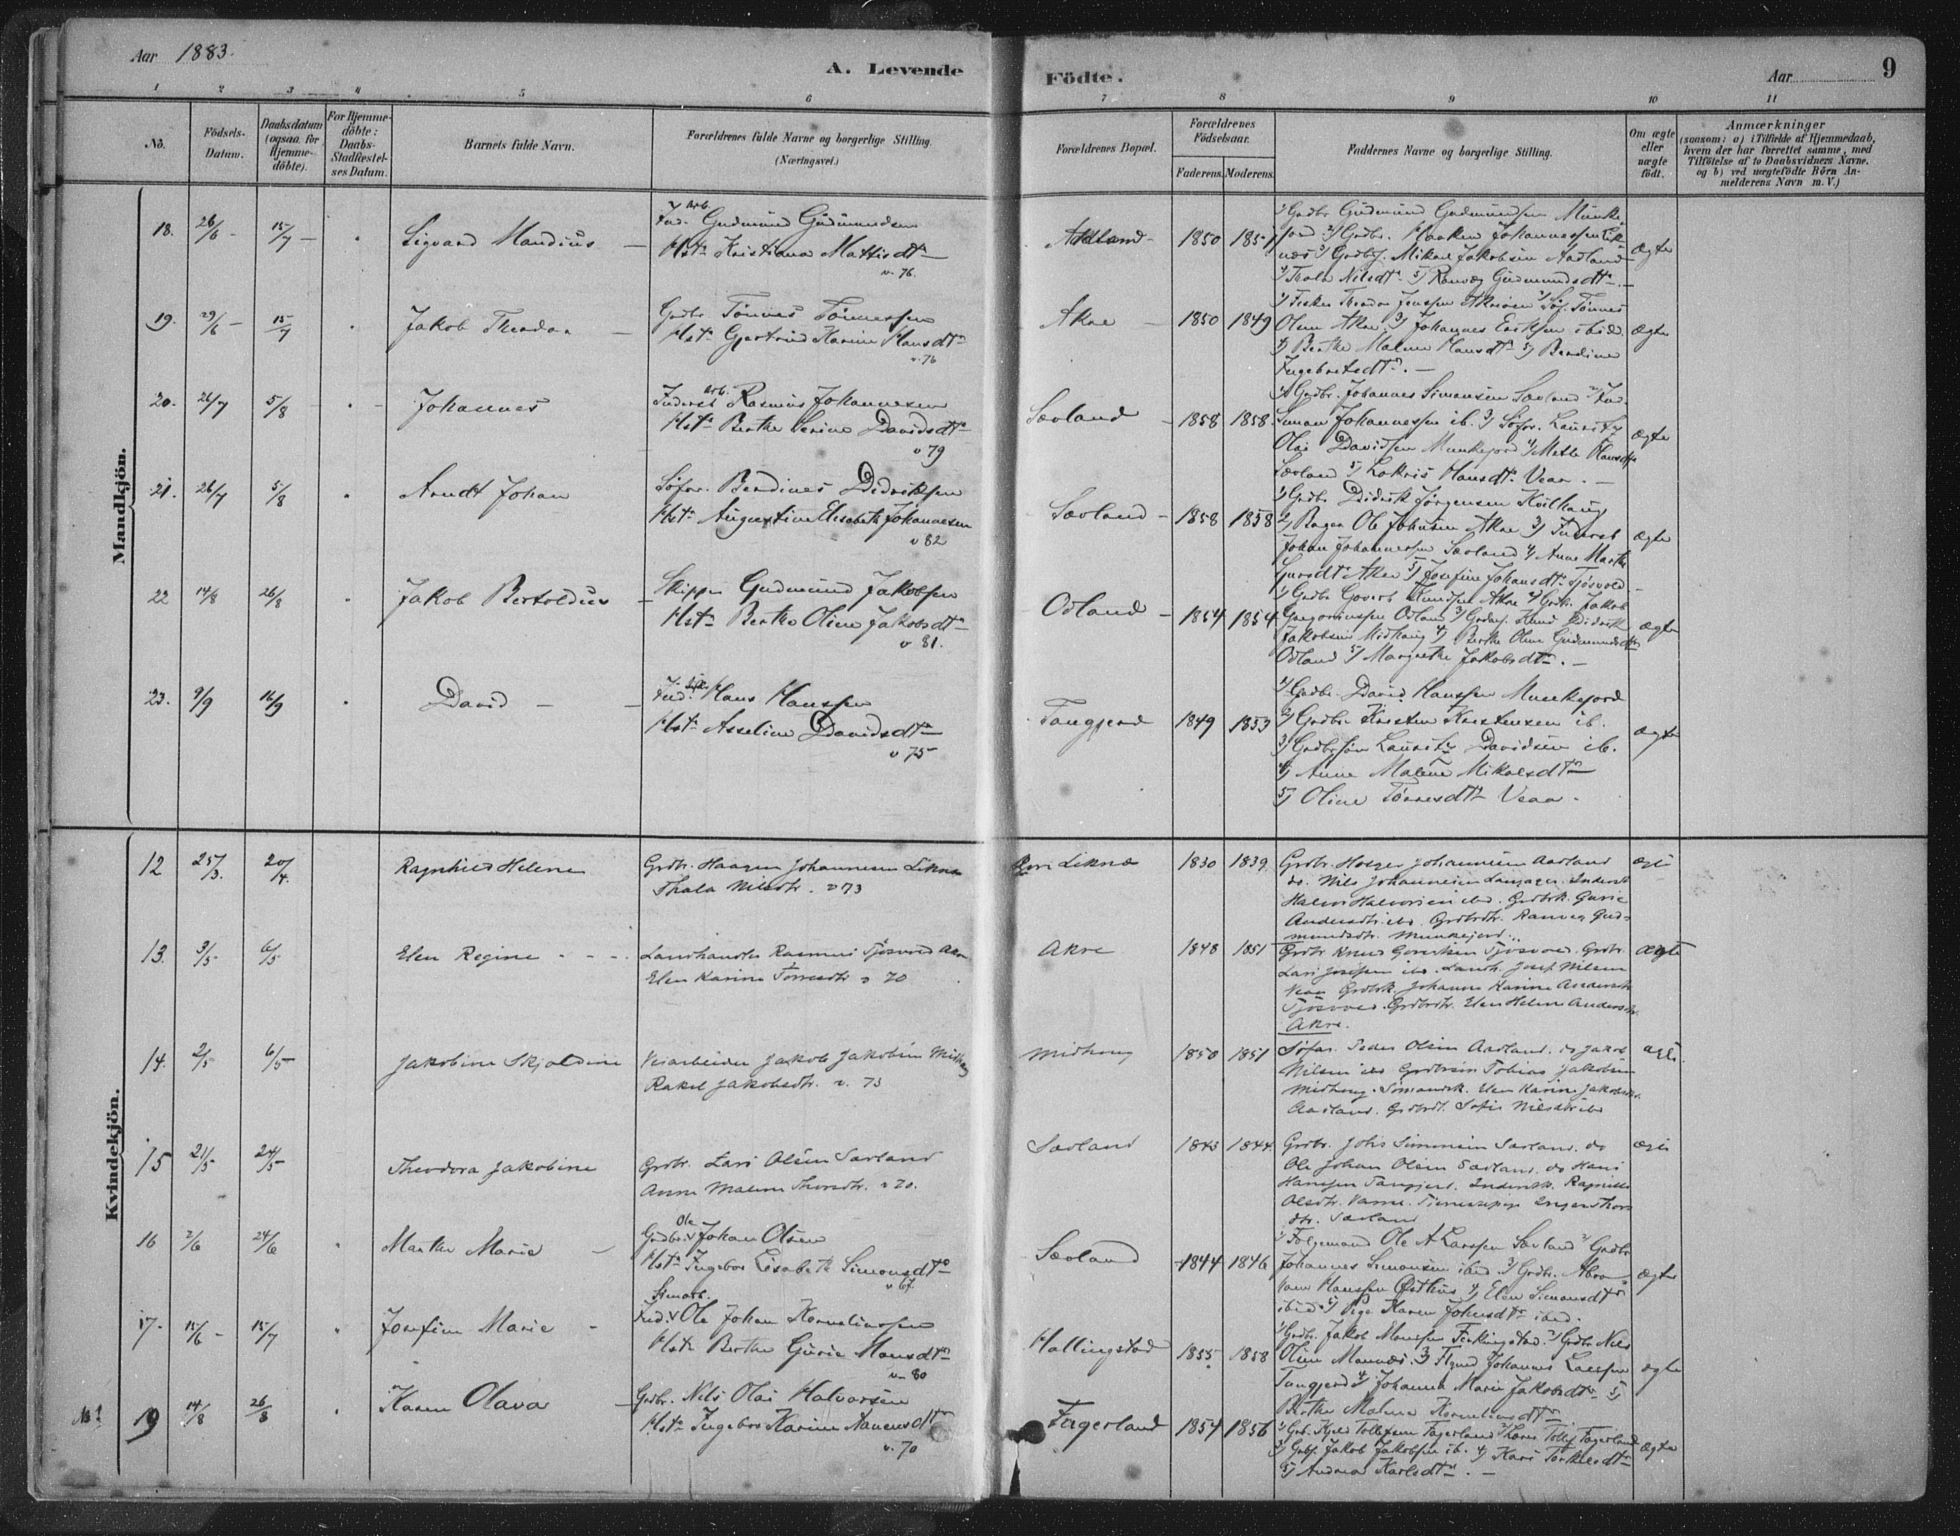 Aar 1883.
A. Levende
Födte.
Aar
9
1 2 3 4 5 6 7 8 9 10 11
No.
Födsels-Datum.
Daabsdatum (ogsaa for Hjemme-döbte).
For Hjemme-döbte: Daabs-Stadfæstel-ses Datum.
Barnets fulde Navn.
Forældrenes fulde Navne og borgerlige Stilling. (Næringsvei.)
Forældrenes Bopæl.
Forældrenes Födselsaar.
Faderens. Moderens.
Faddernes Navne og borgerlige Stilling.
Om ægte eller uægte födt.
Anmærkninger
(saasom: a) i Tilfælde af Hjemmedaab,
hvem der har forrettet samme, med
Tilföielse af to Daabsvidners Navne.
og b) ved uægtefödte Börn An-
melderens Navn m. V.)
Mandkjön.
18. 26/6 15/7 Sigvard Mandius
Gudmund Gudmundsen
Hst. Kristiana Mattisdtr
v. 76.
Aadland 1850 1851
1) Grdbr Gudmund Gudmundsen Munke-
jord 2) Grdbr. Haaken Johannessen Lik-
næs 3) Grdbrs. Mikael Jakobsen Aadland
4) Thala Nilsdtr. 5) Ranveg Gudmundsdtr.
ægte
19. 29/6 15/7 Jakob Theodor
Grdbr Tönnes Tönnessen
Hst. Gjertrud Karine Hansdtr
v. 76
Akre 1850 1849
1) Fisker Theodor Jenssen 2) Söf. Tönnes
Olsen Akre. 3) Johannes Eriksen ibid.
4) Berthe Malene Hansdtr 5) Berdine
Ingebretsdtr.
ægte
20. 26/7 5/8 Johannes
Inderst Rasmus Johannesen
Hst. Berthe Serine Davidsdtr
v 79
Sævland 1858 1858
1) Grdbr. Johannes Simonsen Sævland 2) Ind.
Simon Johannessen ib. 3) Söfar. Lauritz
Olai Davidsen Munkejord 4) Mette Olausdtr
Sævland 5) Hansdtr Veaa.
ægte
21. 26/7 5/8 Arndt Johan
Söfar. Berdines Didriksen
Hst. Augustine Elisabeth Johannesen
v 82
Sævland 1858 1858
1) Grdbr Didrik Jörgensen Kolhaug
2) Bager Ole Johnsen Akre 3) Inderst
Johan Johannessen Sævland 4) Anne Marthe
Akre 5) Josefine Johansdtr. Tjösvold
ægte
22 14/8 26/8 Jakob Bertoldius
Skipper Gudmund Jakobsen
Hst. Berthe Oline Jakobsdtr
v 81.
Odland 1854 1854
1) Grdbr Govert Knudsen Akre 2) Grdb. Jakob
Gregoriussen Odland 3) Knud Didrik
Jakobsen Midhaug 4) Berthe Oline Gudmundsdtr
Odland 5) Margrethe Jakobsdtr.
ægte
23. 9/9 16/9 David
Hans Hanssen
Hst. Asseline Davidsdtr
v 75
Tangjerd 1849 1853
1) Grdbr. David Hanssen Munkejord
2) Grdbr Karsten Karstensen ib.
3) Grdbrsön Lauritz Davidsen ib.
4) Anne Malene Mikalsdtr
5) Oline Törresdtr Veaa.
ægte
Kvindekjön.
12 25/3. 20/4. Ragnhild Helene
Grdbr. Haagen Johannesen Liknæs
Thala Nilsdtr. v 73
Liknæs 1830 1839
Grdbr. Holger Johannesen Aadland
do. Nils Johannesen Inderst
Halvor Halvorsen ibd. Grdbrk. Gurie
Andersdtr. ibd. Grdbrdtr. Ranveig Gud-
mundsdtr. Munkejord.
ægte
13. 3/5 6/5 Elen Regine
Landhandler Rasmus Tjösvold Akre
Elen Karine Torresdtr v 70
Akre 1848 1851
Grdbr Knud Govertsen Tjösvold. Grdbr
Lars Josefsen ibd. Landh. Josef Nilsen
Veaa Grdbrk. Johanne Karine Andersdtr
Tjösvold. Grdbrdtr. Elen Helene Andersdtr.
Akre.
ægte
14. 2/5 6/5 Jakobine Skjoldine
Veiarbeider Jakob Jakobsen Midhaug
Rakel Jakobsdtr. v. 73
Midhaug 1850 1851
Söfar. Peder Olsen Aadland. do Jakob
Nilsen ibd Grdbrsön Tobias Jakobsen
Midhaug. Sömandsk. Elen Karine Jakobsdtr.
Aadland. Grdbrdt. Sofie Nilsdtr ibd
ægte.
15 21/5 24/5 Theodora Jakobine
Grdbr. Lars Olsen Sævland
Anne Malene Thorsdtr. v 70.
Sævland 1843 1844
Grdbr. Johs Simonsen Sævland. do
Ole Johan Olsen Sævland. do Hans
Hansen Tangjerd. Inderstk. Ragnild
Olsdtr. Tjenestepige Inger Thors-
dtr. Sævland
ægte
16 2/6 24/6 Marthe Marie
Grdbr. Ole Johan Olsen
Hst. Ingebor Lisabeth Simonsdtr
v 67.
Sævland 1844 1846
1) Folgemand Ole A Larssen Sævland 2) Grdbr
Johannes Simonsen ibid 3) Grdbr. Abra-
ham Hanssen Östhus 4) Elen Simonsdtr
ibid 5) Pige Karen Johnsdtr ibid.
ægte
17. 15/6 15/7 Josefine Marie
Ind. Ole Johan Korneliussen
Hst. Berthe Gurie Monsdtr
v. 80
Hallingstad 1855 1858
1) Grdbr. Jakob Monssen Ferkingstad. 2) Grdbr. Nils
Olsen Mannæs. 3) Johannes Larssen
Tangjerd 4) Johanna Marie Jakobsdtr 5)
Berthe Malene Korneliusdtr
ægte
19 14/8 26/8 Karen Olava
Grdbr. Nils Olai Halvorsen
Hst. Ingebor Karine Aanensdtr
v. 70
Fagerland 1854 1856
1) Grb. Kjeld Tollefsen Fagerland 2) Lærer Tollef Fagerland
3) Grbs. Jakob Jakobsen ib. 4) Kari Torkelsdtr
5) Andrea Karlsdtr.
ægte